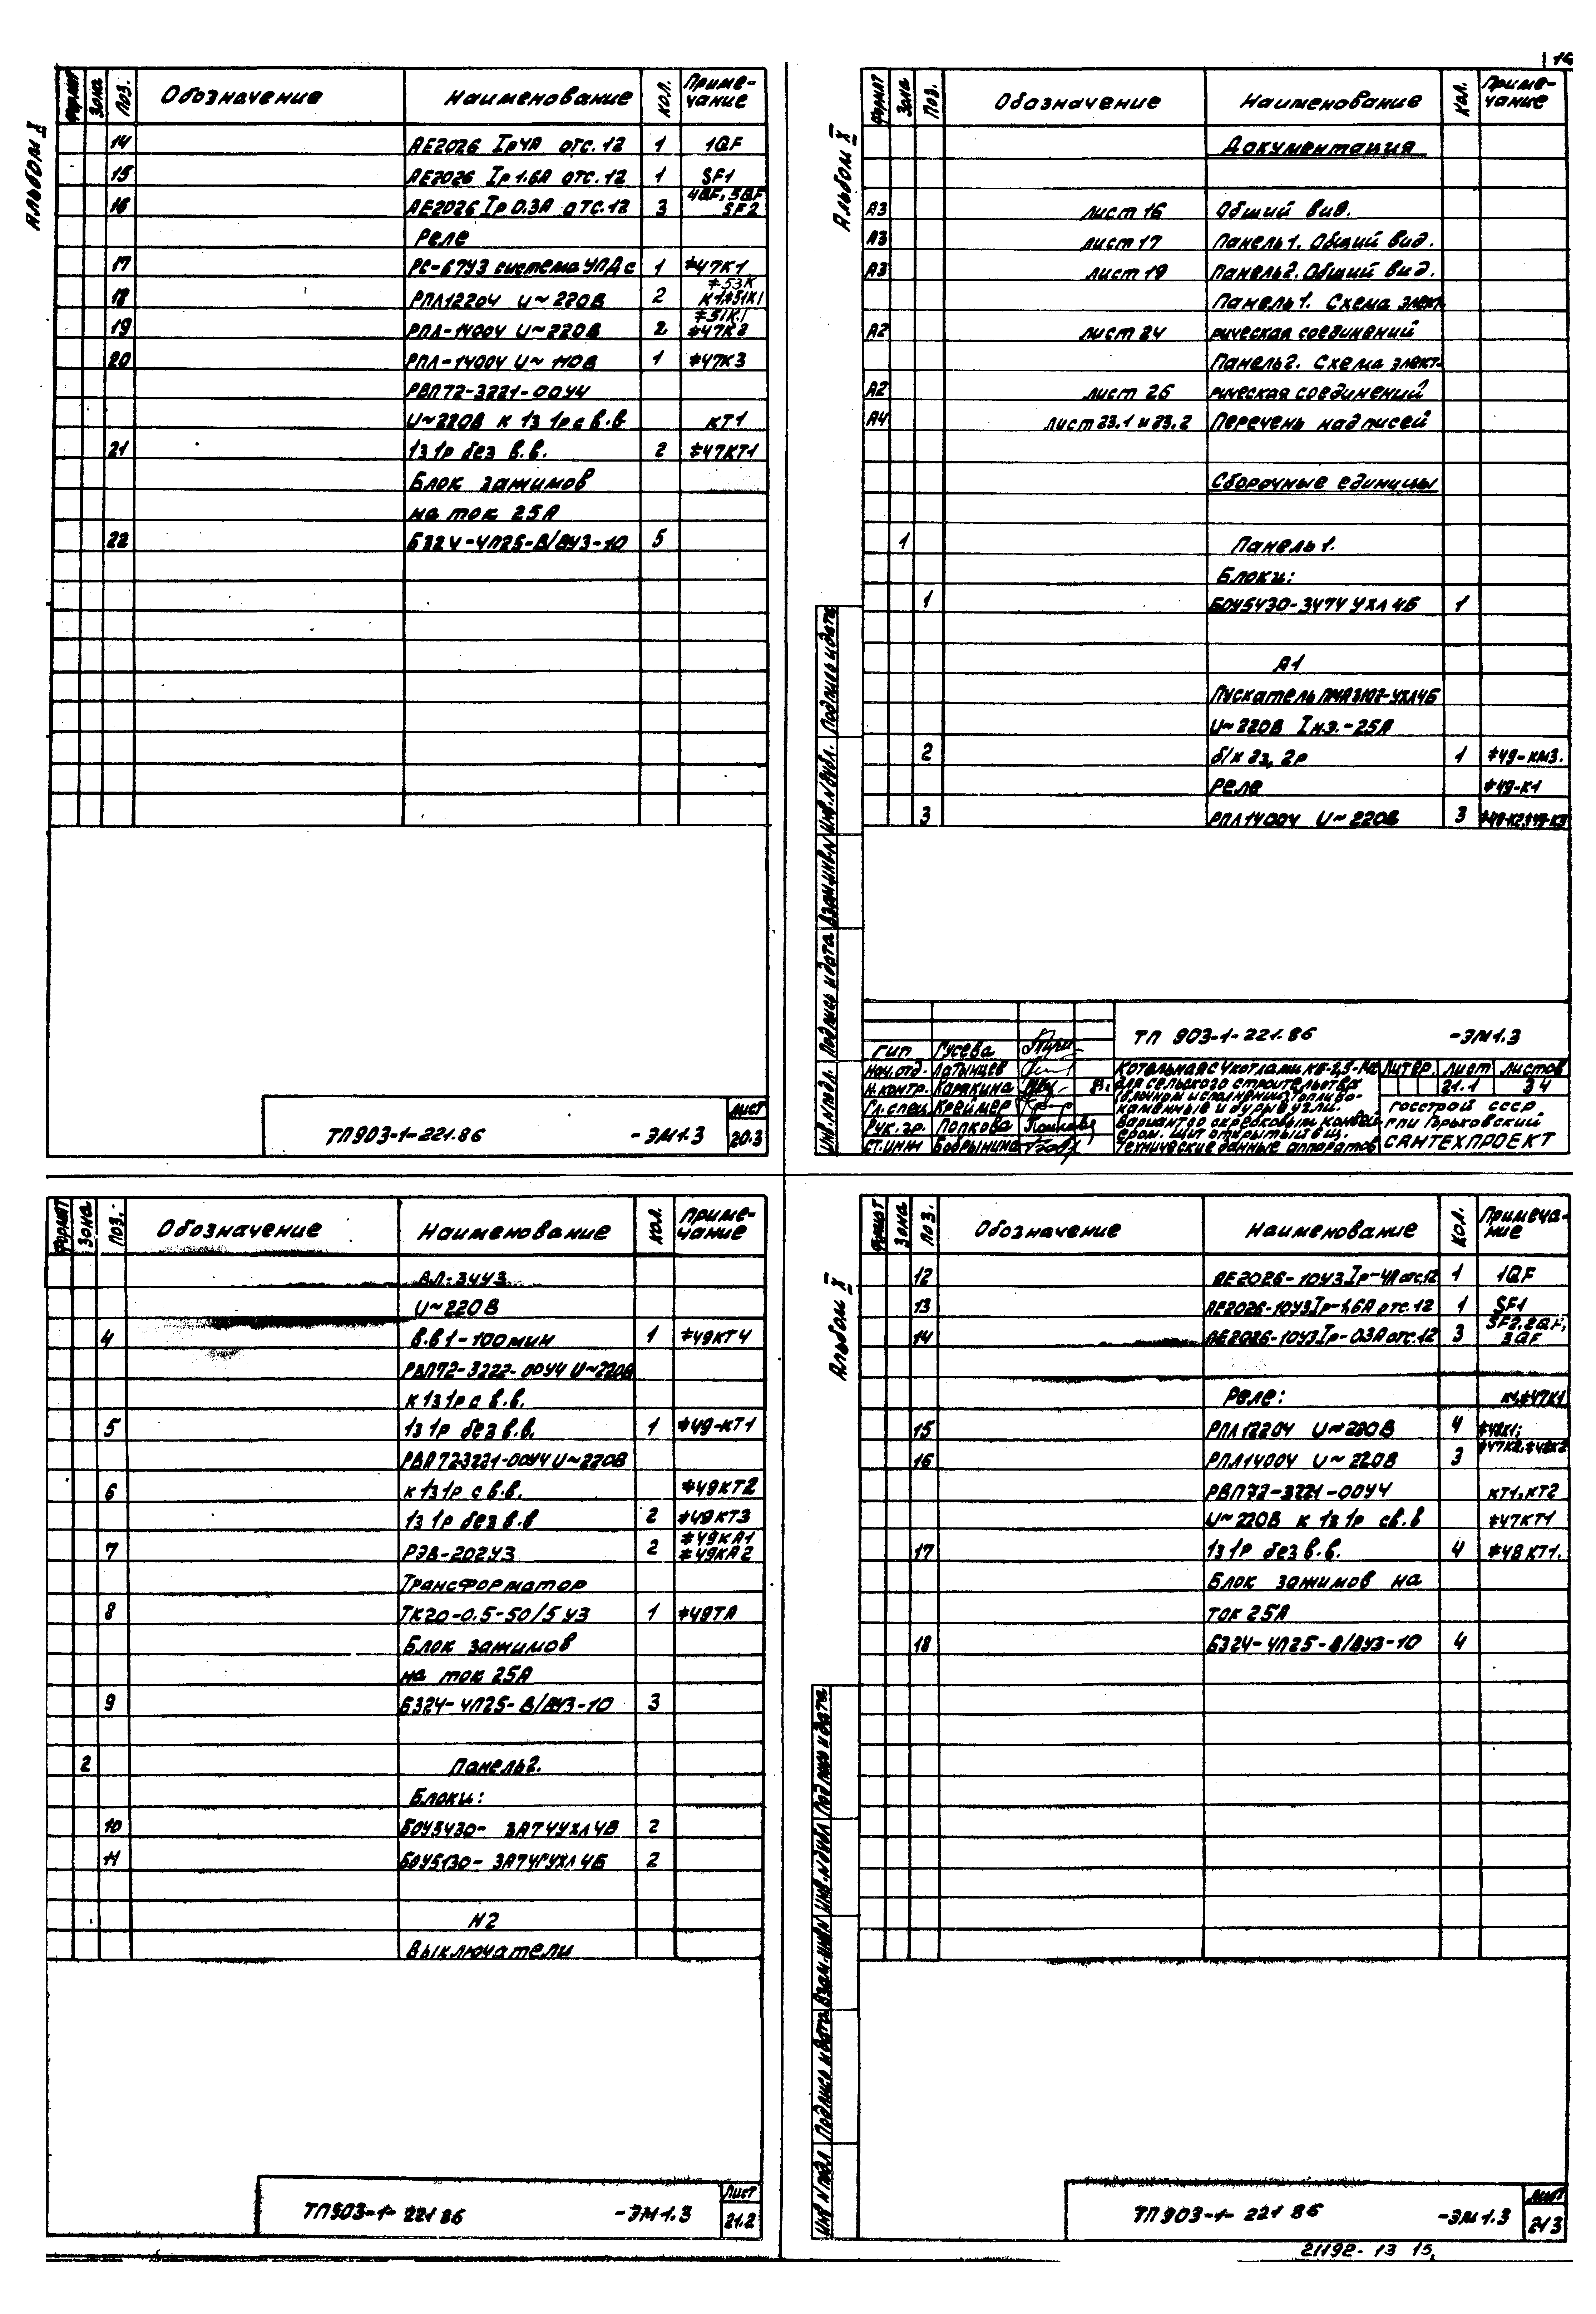 Альбом X
Формат Зона Поз. Обозначение Наименование Кол. Приме-
чание
14 АЕ2026 Iр4А отс.12 1 1QF
15 АЕ2026 Iр1.6А отс.12 1 SF1
16 АЕ2026 Iр0.3А отс.12 3 4QF, 5QF
SF2
Реле
17 РС-67У3 система УПДс 1 *47К1
18 РПЛ12204 U~220В 2 *53К
19 РПЛ-14004 U~220В 2 *51К1
*47К2
20 РПЛ-14004 U~110В 1 *47К3
РВП72-3221-00У4
U~220В к 1з 1р с в.в. КТ1
21 1з 1р без в.в. 2 *47КТ1
Блок зажимов
на ток 25А
22 Б324-4П25-В/ВУ3-10 5
ТП903-1-221.86 -ЭМ1.3
Лист
20.3
Альбом X
Формат Зона Поз. Обозначение Наименование Кол. Приме-
чание
Документация
А3 лист 16 Общий вид.
А3 лист 17 Панель 1. Общий вид.
А3 лист 19 Панель 2. Общий вид.
Панель 1. Схема элект-
А2 лист 24 рическая соединений
Панель 2. Схема элект-
А2 лист 26 рическая соединений
А4 лист 23.1 и 23.2 Перечень надписей
Сборочные единицы
1 Панель 1.
Блоки:
1 БОУ5430-3474 УХЛ4Б 1
А1
Пускатель ПМА3102-УХЛ4Б
U~220В Iн.э.-25А
2 б/к 2з, 2р 1 *49-КМ3.
Реле *49-К1
3 РПЛ14004 U~220В 3 *49-К2,*49-К3
Инв.№подл. Подпись и дата Взам.инв.№ Инв.№дубл. Подпись и дата
ТП 903-1-221.86 -ЭМ1.3
ГИП Гусева
Нач.отд. Латынцев
Н.контр. Карякина
Гл.спец. Креймер
Рук.гр. Попкова
Ст.инж Бобрынина
Котельная с 4 котлами
для сельского строительства
Топливо-
каменные и бурые угли.
Вариант со скребковым конвей-
ером. Щит открытый
Технические данные аппаратов
Литер. Лист Листов
21.1 34
Госстрой СССР
ГПИ Горьковский
САНТЕХПРОЕКТ
Формат Зона Поз. Обозначение Наименование Кол. Приме-
чание
ВЛ-34У3
U~220В
4 в.в 1-100мин 1 *49КТ4
РВП72-3222-00У4 U~220В
к 1з 1р с в.в.
5 1з 1р без в.в. 1 *49-КТ1
РВП723221-00У4 U~220В
6 к 1з 1р с в.в. *49КТ2
1з 1р без в.в 2 *49КТ3
7 РЭВ-202У3 2 *49КА1
*49КА2
Трансформатор
8 ТК20-0.5-50/5 У3 1 *49ТА
Блок зажимов
на ток 25А
9 Б324-4П25-В/ВУ3-10 3
2 Панель 2.
Блоки:
10 БОУ5430-3А74УХЛ4Б 2
11 БОУ5130-3А74ГУХЛ4Б 2
Н2
Выключатели
ТП903-1-221 86 -ЭМ1.3
Лист
21.2
Альбом X
Формат Зона Поз. Обозначение Наименование Кол. Примеча-
ние
12 АЕ2026-10У3 Iр-4А отс.12 1 1QF
13 АЕ2026-10У3 Iр-1,6А отс.12 1 SF1
14 АЕ2026-10У3 Iр-0.3А отс.12 3 SF2, 2QF,
3QF
Реле: К1,*47К1
15 РПЛ12204 U~220В 4 *48К1;
16 РПЛ14004 U~220В 3 *47К2,*48К2
РВП72-3221-00У4 КТ1,КТ2
U~220В к 1з 1р с в.в *47КТ1
17 1з 1р без в.в. 4 *48КТ1.
Блок зажимов на
ток 25А
18 Б324-4П25-В/ВУ3-10 4
Инв №подл Подпись и дата Взам.инв№ Инв.№дубл Подпись и дата
ТП903-1-221 86 -ЭМ1.3
Лист
213
21192-13 15